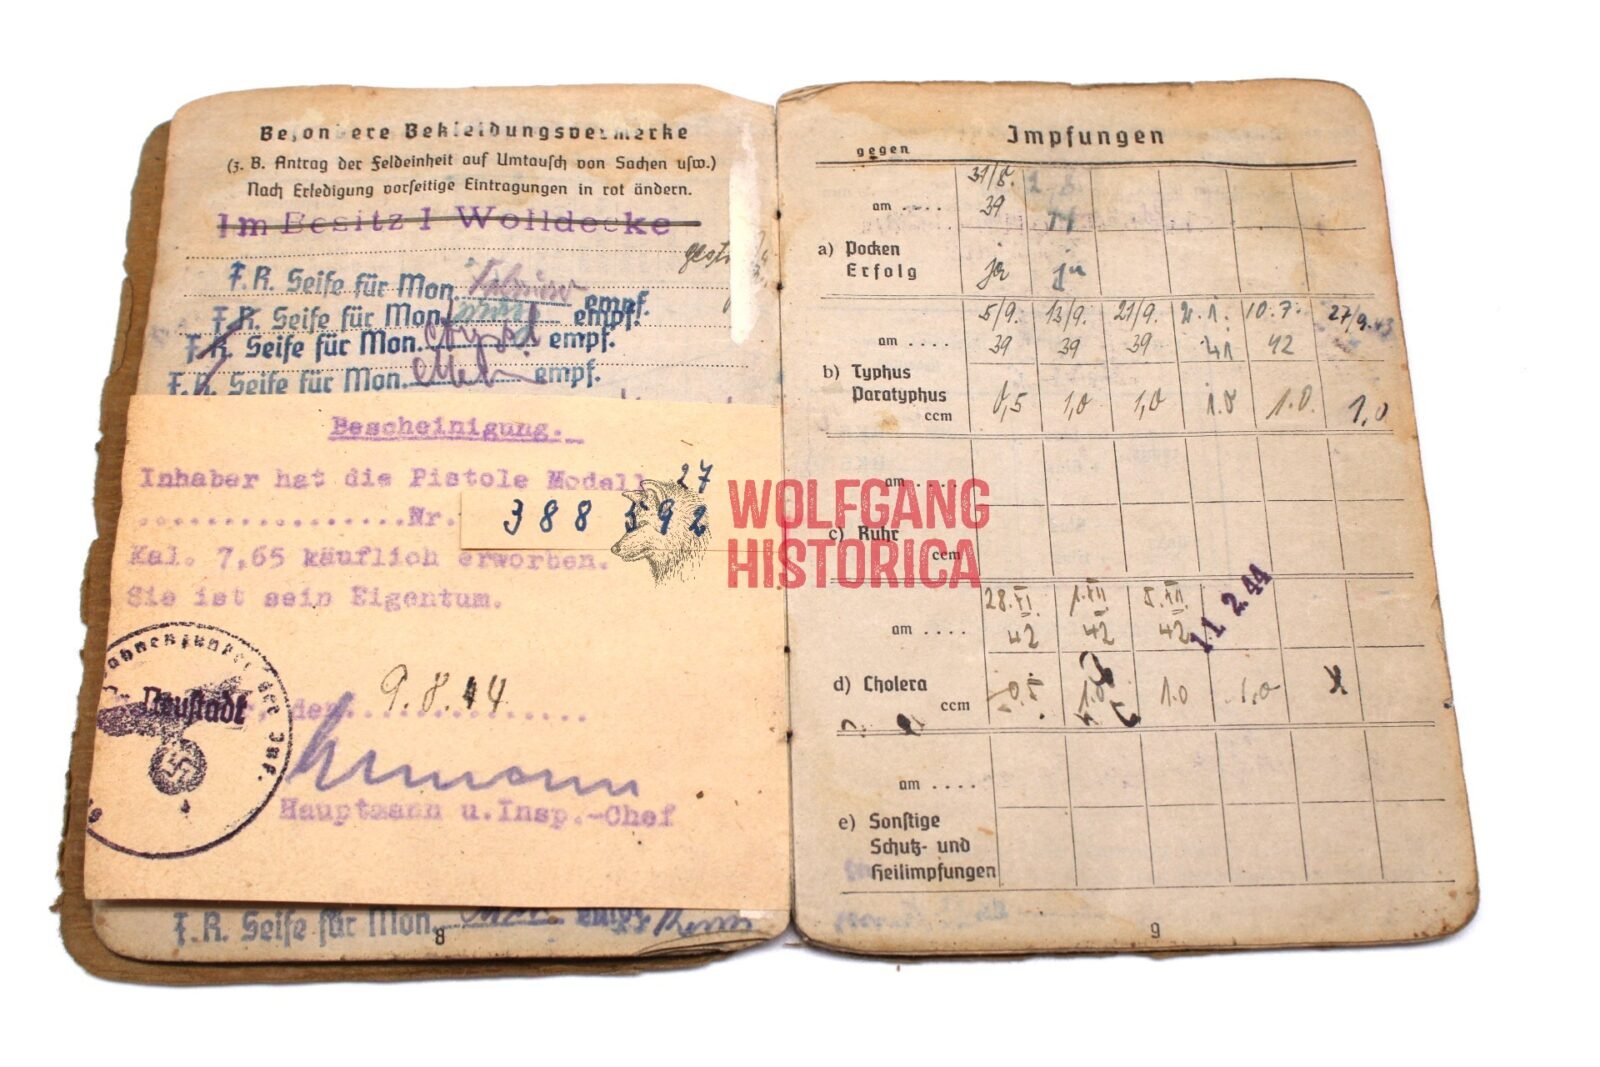 Besondere Bekleidungsvermerke
(z. B. Antrag der Feldeinheit auf Umtausch von Sachen usw.)
Nach Erledigung vorseitige Eintragungen in rot ändern.
Im Besitz 1 Wolldecke
F.R. Seife für Mon. empf.
F.R. Seife für Mon. empf.
F.R. Seife für Mon. empf.
F.R. Seife für Mon. empf.
Bescheinigung.
Inhaber hat die Pistole Modell 27
................Nr. 388 592
Kal. 7,65 käuflich erworben.
Sie ist sein Eigentum.
Neustadt, den 9.8.44
Hauptmann u. Insp.-Chef
F.R. Seife für Mon. empf.
8
WOLFGANG
HISTORICA
Impfungen
gegen
am .... 31/8. 39
a) Pocken
Erfolg ja ja
am .... 5/9. 39 13/9. 39 21/9. 39 41 10.7. 42 27/9.43
b) Typhus
Paratyphus
ccm 0,5 1,0 1,0 1.0 1.0. 1,0
am ....
c) Ruhr
ccm
am .... 28.XI 42 1.XII 42 8.XII 42 11.2.44
d) Cholera
ccm 0.5 1.0 1.0 1,0 X
am ....
e) Sonstige
Schutz- und
Heilimpfungen
9